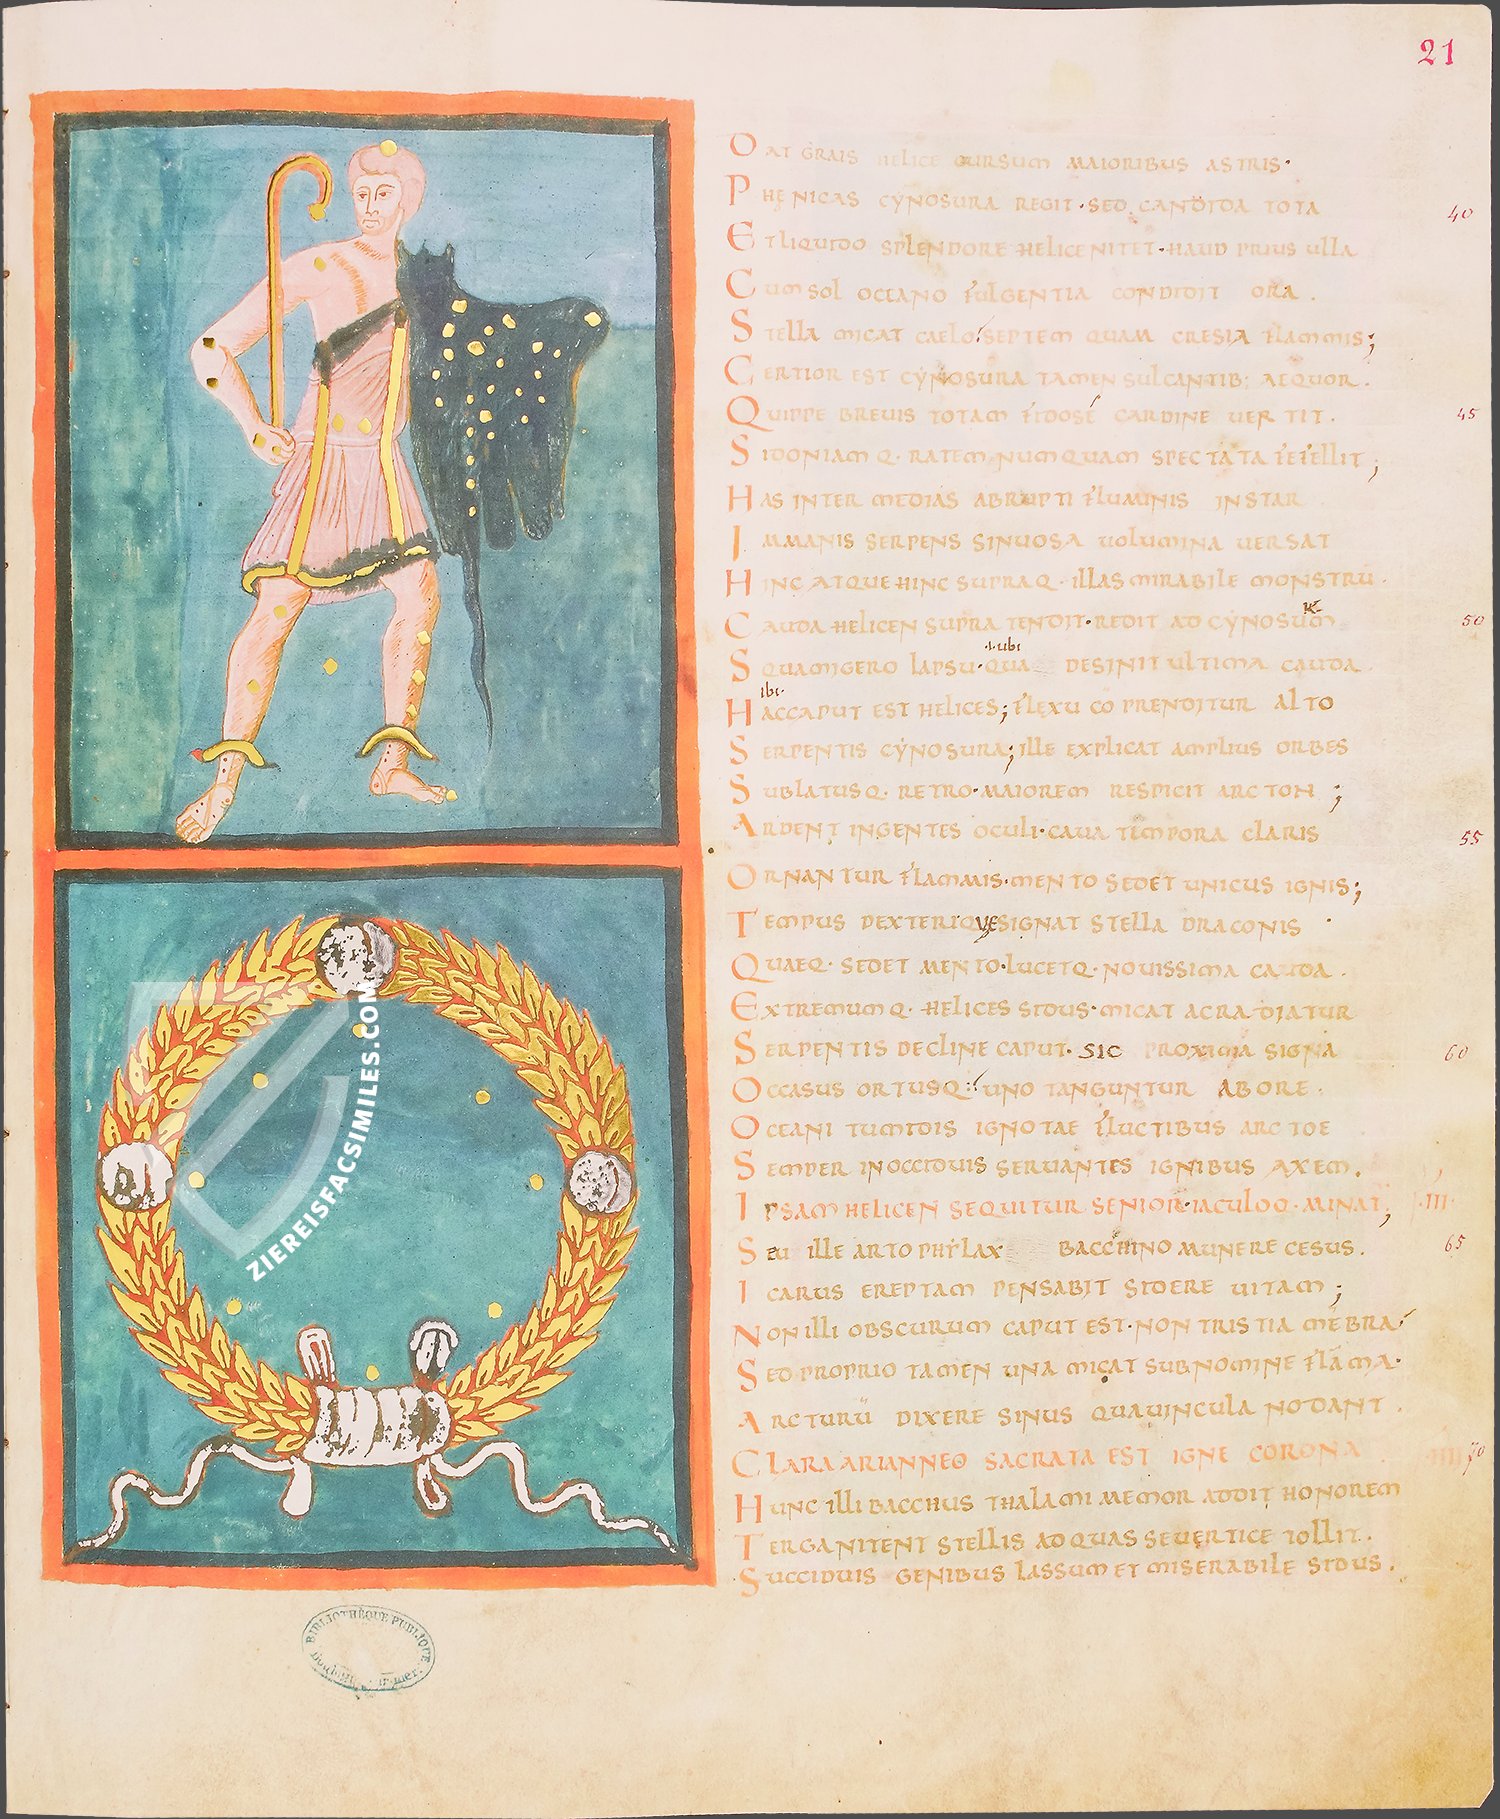 21
OAT GRAIS HELICE CURSUM MAIORIBUS ASTRIS·
PHĘNICAS CẎNOSURA REGIT·SED CANDIDA TOTA
40
ET LIQUIDO SPLENDORE HELICE NITET·HAUD PRIUS ULLA
CUM SOL OCEANO FULGENTIA CONDIDIT ORA.
STELLA MICAT CAELO SEPTEM QUAM CRESIA FLAMMIS;
CERTIOR EST CẎNOSURA TAMEN SULCANTIB; AEQUOR.
QUIPPE BREVIS TOTAM FIDOSE CARDINE UERTIT.
45
SIDONIAMQ·RATEM NUMQUAM SPECTATA FEFELLIT;
HAS INTER MEDIAS ABRUPTI FLUMINIS INSTAR
IMMANIS SERPENS SINUOSA UOLUMINA UERSAT
HINC ATQUE HINC SUPRAQ·ILLAS MIRABILE MONSTRŪ.
CAUDA HELICEN SUPRA TENDIT·REDIT AD CẎNOSUM
50
·i·ubi
SQUAMIGERO LAPSU·QUA DESINIT ULTIMA CAUDA
ibi·
HAC CAPUT EST HELICES; FLEXU CO PRENDITUR ALTO
SERPENTIS CẎNOSURA; ILLE EXPLICAT AMPLIUS ORBES
SUBLATUSQ·RETRO·MAIOREM RESPICIT ARCTON;
ARDENT INGENTES OCULI·CAUA TEMPORA CLARIS
55
ORNANTUR FLAMMIS·MENTO SEDET UNICUS IGNIS;
TEMPUS DEXTERIQVE SIGNAT STELLA DRACONIS
QUAEQ·SEDET MENTO·LUCETQ·NOUISSIMA CAUDA.
EXTREMUMQ·HELICES SIDUS·MICAT ACRADIATUR
SERPENTIS DECLINE CAPUT·SIC PROXIMA SIGNA
60
OCCASUS ORTUSQ: UNO TANGUNTUR ABORE.
OCEANI TUMIDIS IGNOTAE FLUCTIBUS ARCTOE
SEMPER INOCCIDUIS SERUANTES IGNIBUS AXEM.
IPSAM HELICEN SEQUITUR SENIOR·IACULOQ·MINAT; ·III·
SEU ILLE ARTOPHẎLAX BACCHINO MUNERE CESUS.
65
ICARUS EREPTAM PENSABIT SIDERE UITAM;
NON ILLI OBSCURUM CAPUT EST·NON TRISTIA MĒBRA
SED PROPRIO TAMEN UNA MICAT SUB NOMINE FLĀMA·
ARCTURŪ DIXERE SINUS QUA UINCULA NODANT.
CLARA ARIANNEO SACRATA EST IGNE CORONA. IIII
70
HUNC ILLI BACCHUS THALAMI MEMOR ADDIT HONOREM
TERGA NITENT STELLIS AD QUAS SE UERTICE TOLLIT.
SUCCIDUIS GENIBUS LASSUM ET MISERABILE SIDUS.
ZIEREISFACSIMILES.COM
BIBLIOTHÈQUE PUBLIQUE